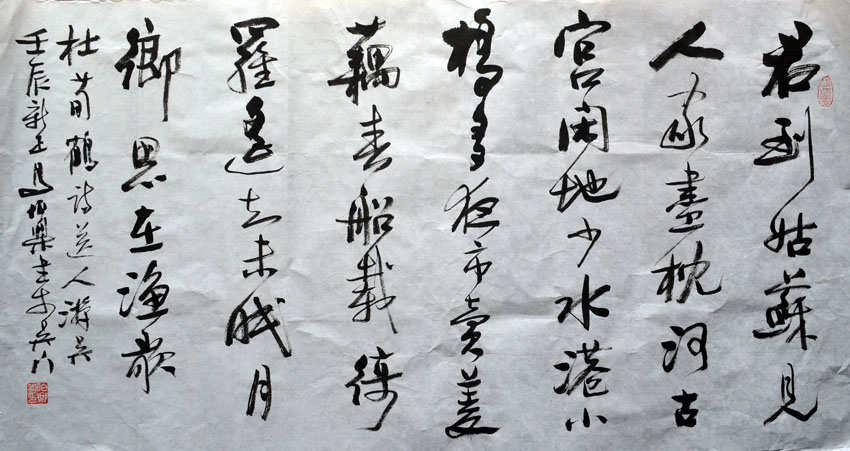 君到姑蘇見
人家盡枕河古
宮閑地少水港小
橋多夜市賣菱
藕春船載綺
羅遙知未眠月
鄉思在漁歌
杜荀鶴詩送人游吴
壬辰新正月馬伯樂書於吴门